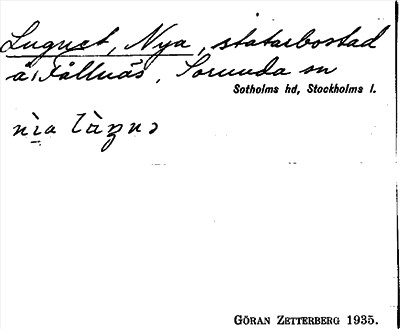 Lugnet, Nya, statarbostad
å Fållnäs, Sorunda sn
Sotholms hd, Stockholms l.
GÖRAN ZETTERBERG 1935.